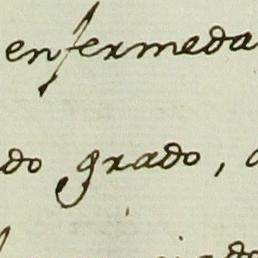 enfermeda
do grado,